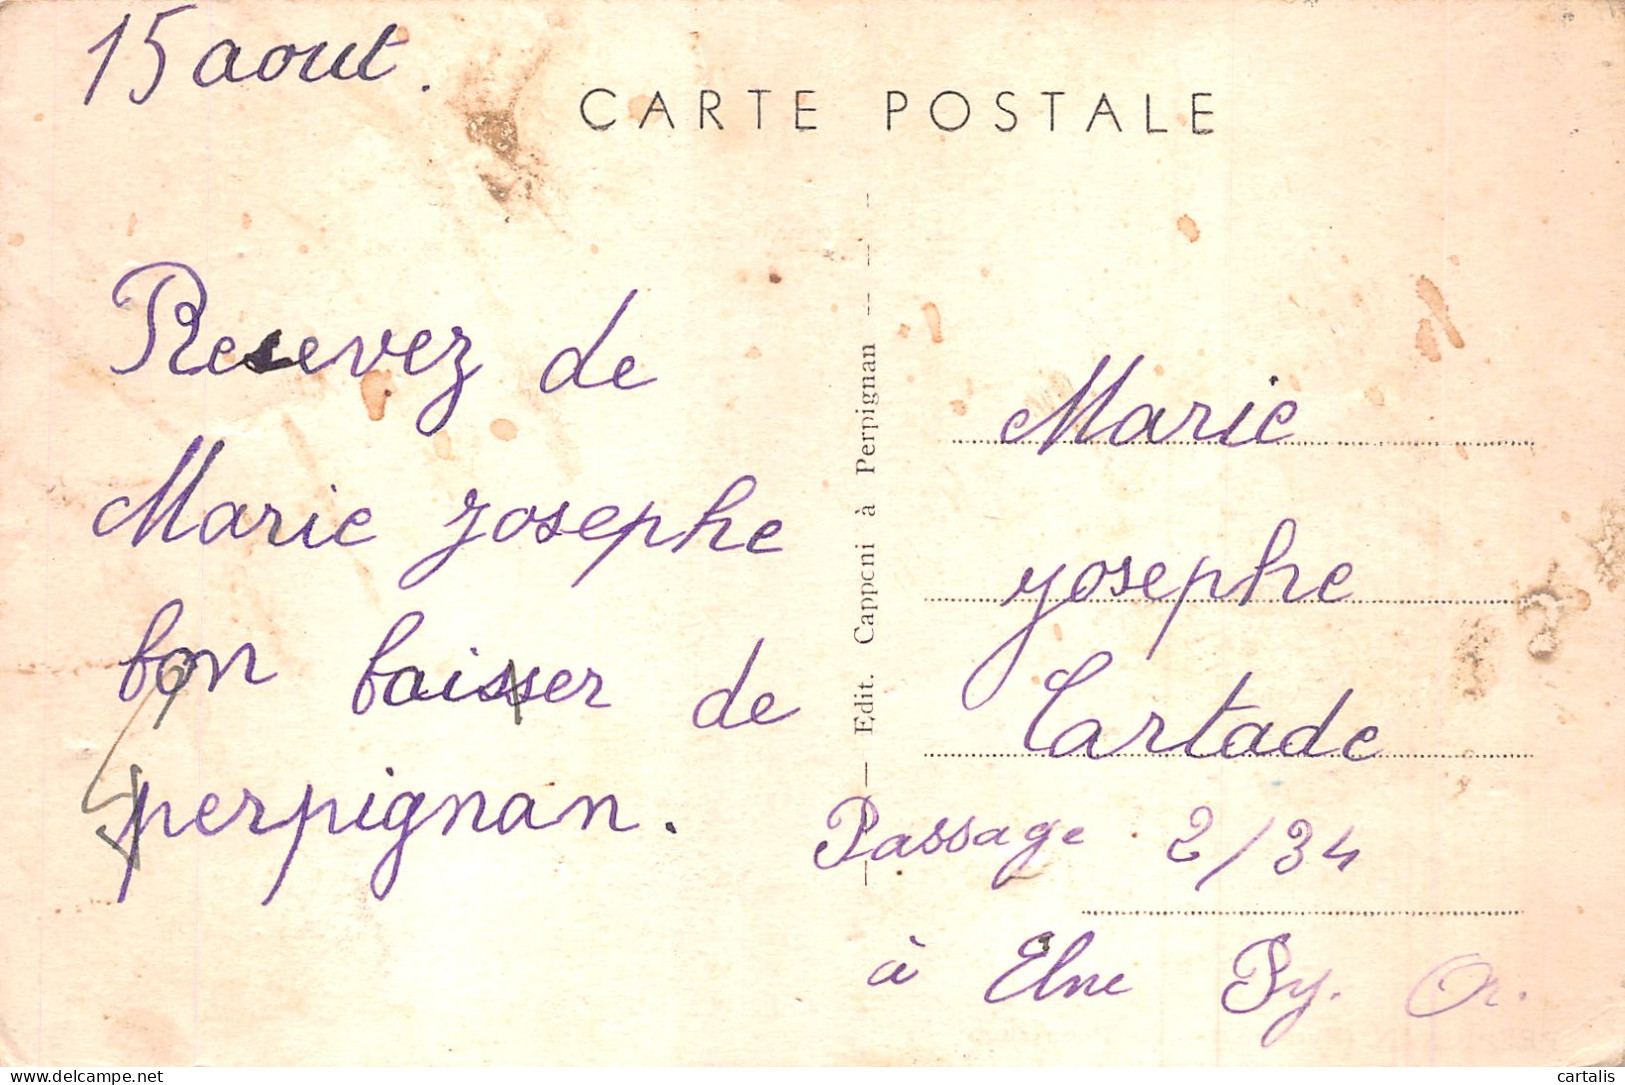 15 aout.
CARTE POSTALE
Resevez de
Marie yosephe
bon baisser de
perpignan.
Edit. Capponi à Perpignan
Marie
yosephe
Tartade
Passage 2/34
à Elne Py. Or.
cartalis